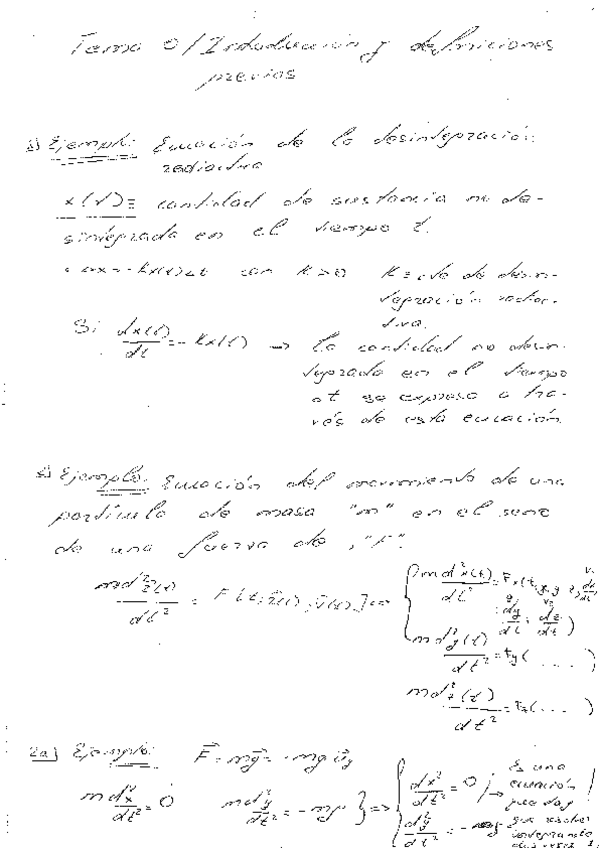 Tema 0/Introducción y definiciones
previas
1) Ejemplo: Ecuación de la desintegración
radiactiva
x(t) ≡ cantidad de sustancia no de-
sintegrada en el tiempo t.
Δx = -Kx(t)Δt con K>0 K ≡ cte de desin-
tegración radiac-
tiva.
Si dx(t)/dt = -Kx(t) → La cantidad no desin-
tegrada en el tiempo
Δt se expresa a tra-
vés de esta ecuación
2) Ejemplo: Ecuación del movimiento de una
partícula de masa "m" en el seno
de una fuerza de "F".
md²r(t)/dt² = F[t, r(t), v(t)] ⇒ { md²x(t)/dt² = Fx(t, x, y, z, dx/dt, dy/dt, dz/dt)
md²y(t)/dt² = Fy( .... )
md²z(t)/dt² = Fz( ... )
2a) Ejemplo: F = mg = -mg uy
md²x/dt² = 0 md²y/dt² = -mg } ⇒ { d²x/dt² = 0
Es una
ecuación
que hay
que resolver
integrando